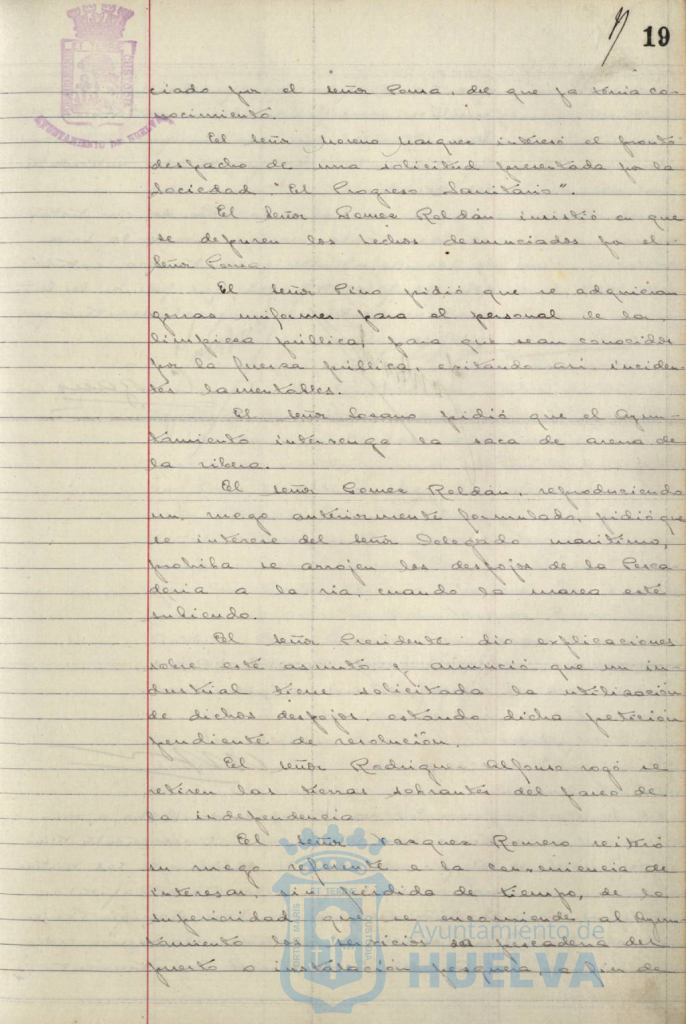 19
AYUNTAMIENTO DE HUELVA
ciado por el señor Ponsa, del que ya tenia co-
nocimiento.
El señor Moreno Marquez interesó el pronto
despacho de una solicitud presentada por la
Sociedad "El Progreso Sanitario".
El señor Gomez Roldán insistió en que
se depuren los hechos denunciados por el
señor Ponsa.
El señor Pino pidió que se adquieran
gorras uniformes para el personal de la
limpieza pública, para que sean conocidos
por la fuerza pública, evitando asi inciden-
tes lamentables.
El señor Lozano pidió que el Ayun-
tamiento intervenga la saca de arena de
la ribera.
El señor Gomez Roldán, reproduciendo
un ruego anteriormente formulado, pidió que
se interese del señor Delegado maritimo,
prohiba se arrojen los despojos de la Pesca
deria a la ria, cuando la marea esté
subiendo.
El señor Presidente dio explicaciones
sobre este asunto y anunció que un in-
dustrial tiene solicitada la utilización
de dichos despojos, estando dicha petición
pendiente de resolución.
El señor Rodriguez Alfonso rogó se
retiren las tierras sobrantes del paseo de
la independencia
El señor Vazquez Romero reiteró
su ruego referente a la conveniencia de
interesar, sin pérdida de tiempo, de la
superioridad que se encomiende al Ayun-
tamiento los servicios pescaderia del
puerto o instalación pesquera, a fin de
Ayuntamiento de
HUELVA